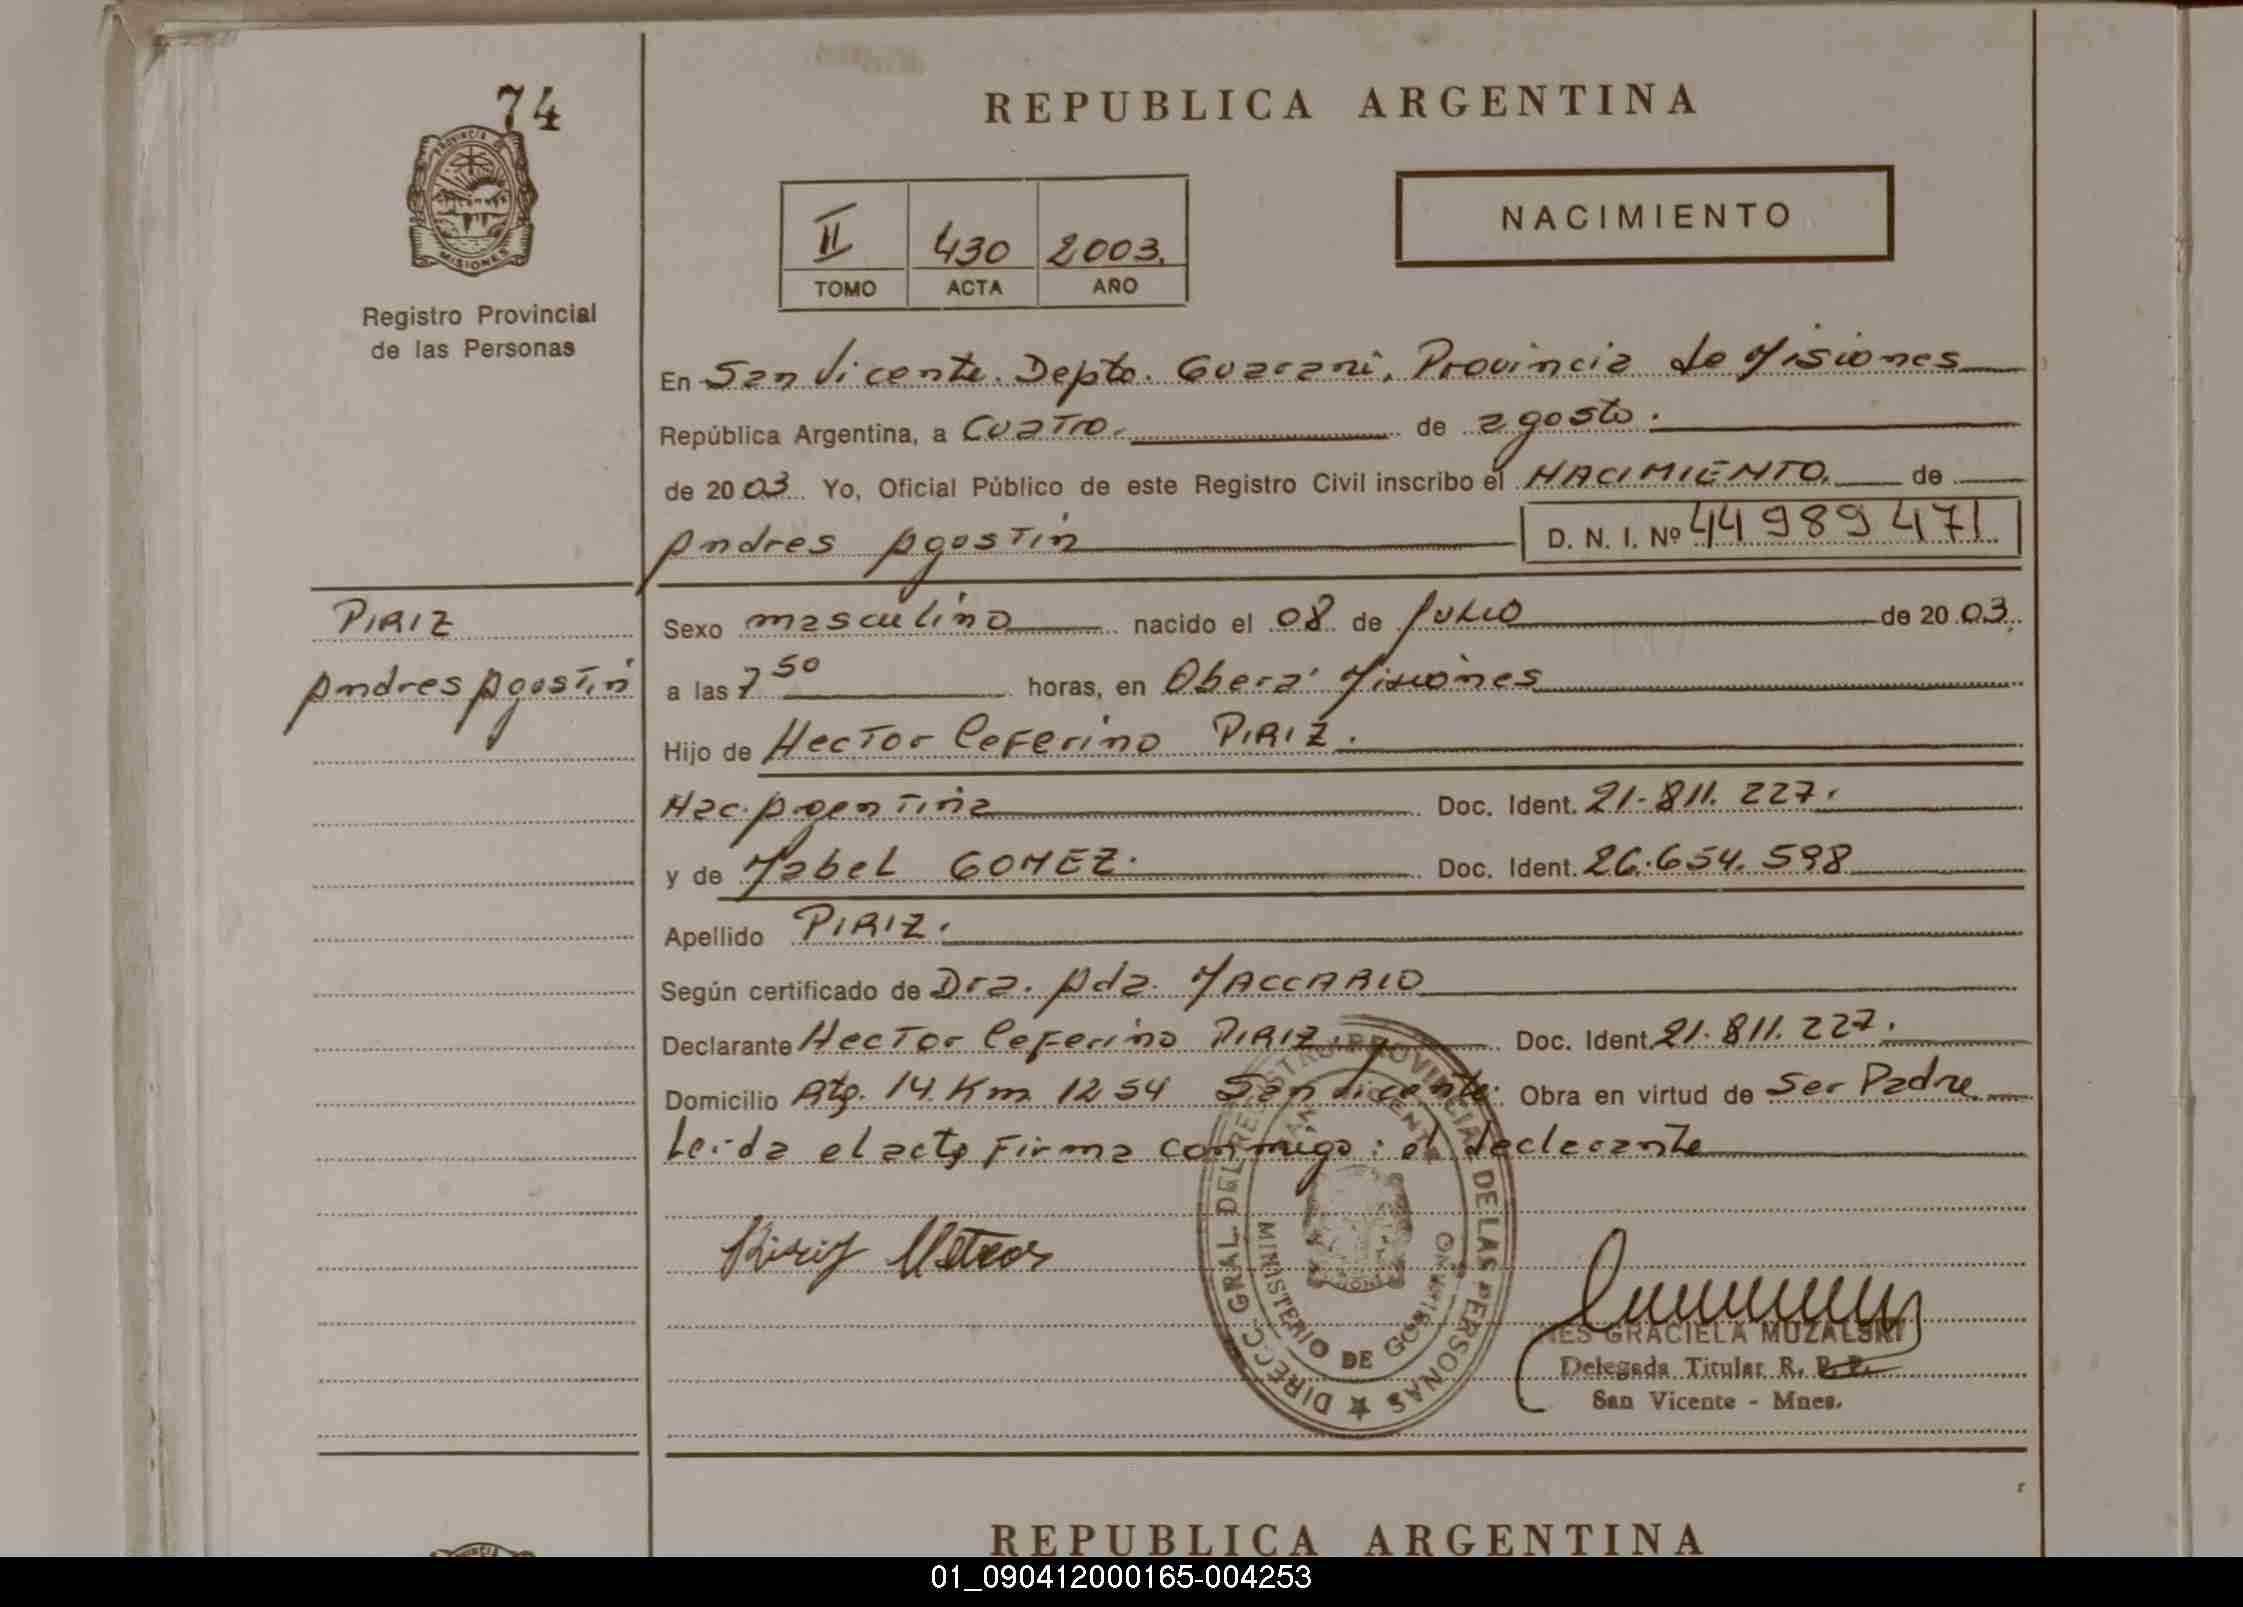 74
PROVINCIA DE
MISIONES
Registro Provincial
de las Personas
REPUBLICA ARGENTINA
II 430 2003.
TOMO ACTA AÑO
NACIMIENTO
En San Vicente. Depto. Guarani, Provincia de Misiones
República Argentina, a Cuatro. de agosto.
de 2003 Yo, Oficial Público de este Registro Civil inscribo el NACIMIENTO. de
Andres Agostin D. N. I. Nº 44989471
PIRIZ
Andres Agostin
Sexo masculino nacido el 08 de Julio de 2003.
a las 7 50 horas, en Oberá Misiones
Hijo de Hector Ceferino PIRIZ.
Nac. Argentina Doc. Ident. 21.811.227.
y de Mabel GOMEZ. Doc. Ident. 26.654.598
Apellido PIRIZ.
Según certificado de Dra. Ada. MACCARIO
Declarante Hector Ceferino PIRIZ. Doc. Ident. 21.811.227.
Domicilio Rta. 14 Km 1254 San Vicente. Obra en virtud de Ser Padre
Leida el acta Firma conmigo: el declarante
DIRECC. GRAL. DEL REGISTRO PROVINCIAL DE LAS PERSONAS
SAN VICENTE
MINISTERIO DE GOBIERNO
GRACIELA MUZALSKI
Delegada Titular R. P. P.
San Vicente - Mnes.
REPUBLICA ARGENTINA
01_090412000165-004253